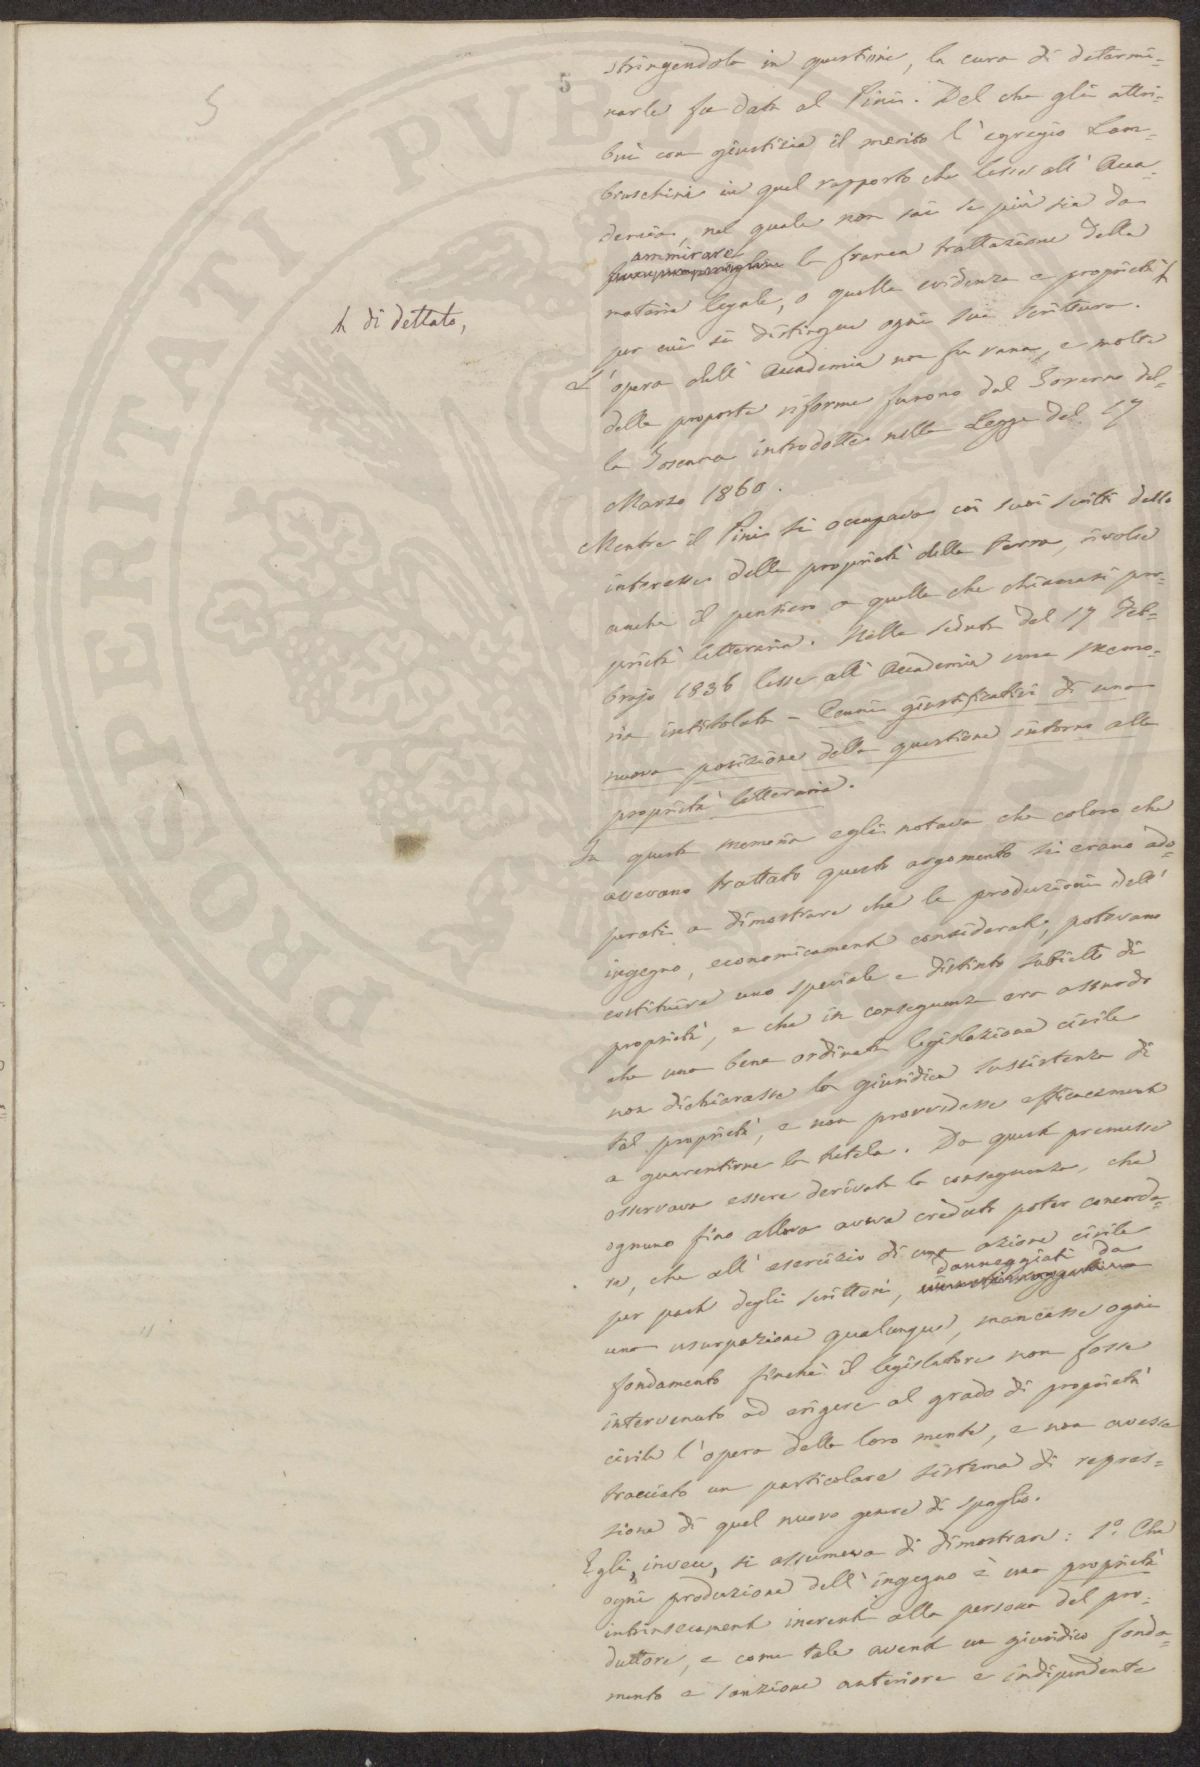 5
5
stringendola in questioni, la cura di determi=
narle fu data al Pini. Del che gli attri=
buì con giustizia il merito l'egregio Lam=
bruschini in quel rapporto che lesse all'Acca=
demia, nel quale non sai se più sia da
ammirare
la franca trattazione della
materia legale, o quella evidenza e proprietà
di dettato,
per cui si distingue ogni sua scrittura.
L'opera dell'Accademia non fu vana, e molte
delle proposte riforme furono dal Governo del=
la Toscana introdotte nella Legge del 17
Marzo 1860.
Mentre il Pini si occupava coi suoi scritti dello
interesse della proprietà della terra, rivolse
anche il pensiero a quella che chiamasi pro=
prietà letteraria. Nella seduta del 17 Feb=
brajo 1836 lesse all'Accademia una Memo=
ria intitolata - Cenni giustificativi di una
nuova posizione della questione intorno alla
proprietà letteraria.
In questa memoria egli notava che coloro che
avevano trattato questo argomento si erano ado=
perati a dimostrare che le produzioni dell'
ingegno, economicamente considerate, potevano
costituire uno speciale e distinto subietto di
proprietà, e che in conseguenza era assurdo
che una bene ordinata legislazione civile
non dichiarasse la giuridica sussistenza di
tal proprietà, e non provvedesse efficacemente
a guarentirne la tutela. Da queste premesse
osservava essere derivata la conseguenza, che
ognuno fino allora aveva creduto poter concorda=
re, che all'esercizio di una azione civile
per parte degli scrittori, danneggiati da
una usurpazione qualunque, mancasse ogni
fondamento finchè il legislatore non fosse
intervenuto ad erigere al grado di proprietà
civile l'opera della loro mente, e non avesse
tracciato un particolare sistema di repres=
sione di quel nuovo genere di spoglio.
Egli, invece, si assumeva di dimostrare: 1º. Che
ogni produzione dell'ingegno è una proprietà
intrinsecamente inerente alla persona del pro=
duttore, e come tale avente un giuridico fonda=
mento e sanzione anteriore e indipendente
PROSPERITATI PVBLI